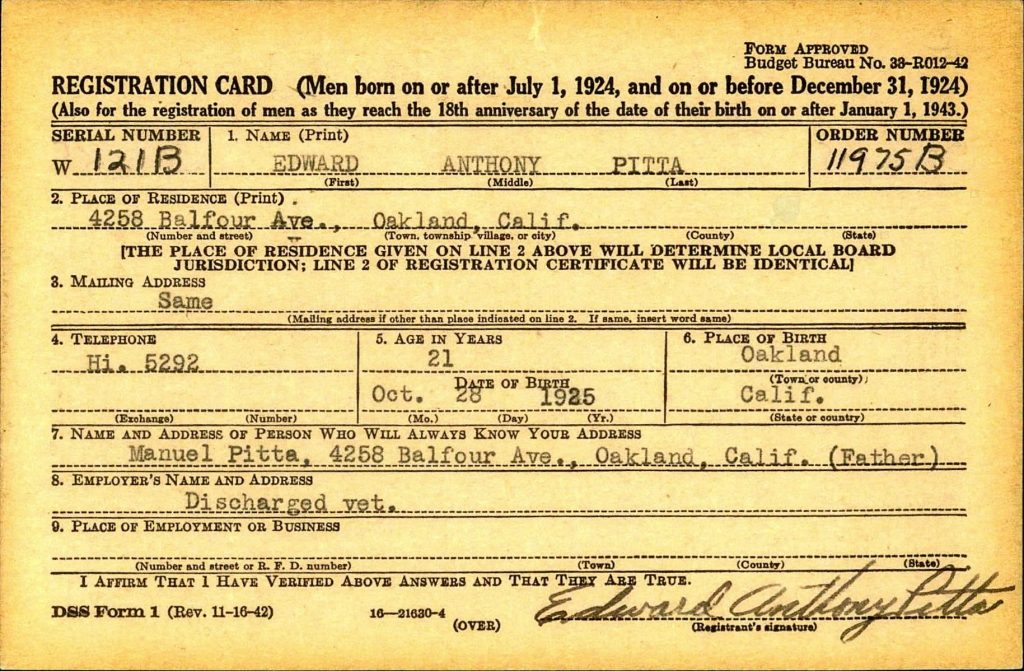 FORM APPROVED
Budget Bureau No. 33-R012-42
REGISTRATION CARD (Men born on or after July 1, 1924, and on or before December 31, 1924)
(Also for the registration of men as they reach the 18th anniversary of the date of their birth on or after January 1, 1943.)
SERIAL NUMBER 1. NAME (Print) ORDER NUMBER
W 121B EDWARD ANTHONY PITTA 11975B
(First) (Middle) (Last)
2. PLACE OF RESIDENCE (Print)
4258 Balfour Ave., Oakland, Calif.
(Number and street) (Town, township, village, or city) (County) (State)
[THE PLACE OF RESIDENCE GIVEN ON LINE 2 ABOVE WILL DETERMINE LOCAL BOARD
JURISDICTION; LINE 2 OF REGISTRATION CERTIFICATE WILL BE IDENTICAL]
3. MAILING ADDRESS
Same
(Mailing address if other than place indicated on line 2. If same, insert word same)
4. TELEPHONE 5. AGE IN YEARS 6. PLACE OF BIRTH
Hi. 5292 21 Oakland
DATE OF BIRTH (Town or county)
Oct. 28 1925 Calif.
(Exchange) (Number) (Mo.) (Day) (Yr.) (State or country)
7. NAME AND ADDRESS OF PERSON WHO WILL ALWAYS KNOW YOUR ADDRESS
Manuel Pitta, 4258 Balfour Ave., Oakland, Calif. (Father)
8. EMPLOYER'S NAME AND ADDRESS
Discharged vet.
9. PLACE OF EMPLOYMENT OR BUSINESS
(Number and street or R. F. D. number) (Town) (County) (State)
I AFFIRM THAT I HAVE VERIFIED ABOVE ANSWERS AND THAT THEY ARE TRUE.
DSS Form 1 (Rev. 11-16-42) 16—21630-4 Edward Anthony Pitta
(OVER) (Registrant's signature)